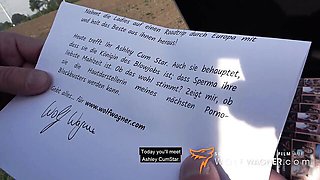 Nehmt die Ladies auf einen Roadtrip durch Europa mit
und holt das Beste aus ihnen heraus!
Heute trefft ihr Ashley Cum Star. Auch sie behauptet,
dass sie die Königin des Blowjobs ist, dass Sperma ihre
liebste Mahlzeit ist. Ob das wohl stimmt? Zeigt mir, ob
sie Hautdarstellerin meines nächsten Porno-
Blockbusters werden kann.
Gebt alles, für www.wolfwagner.com
Wolf Wagner
Today you'll meet
Ashley CumStar.
WOLFWAGNER.COM